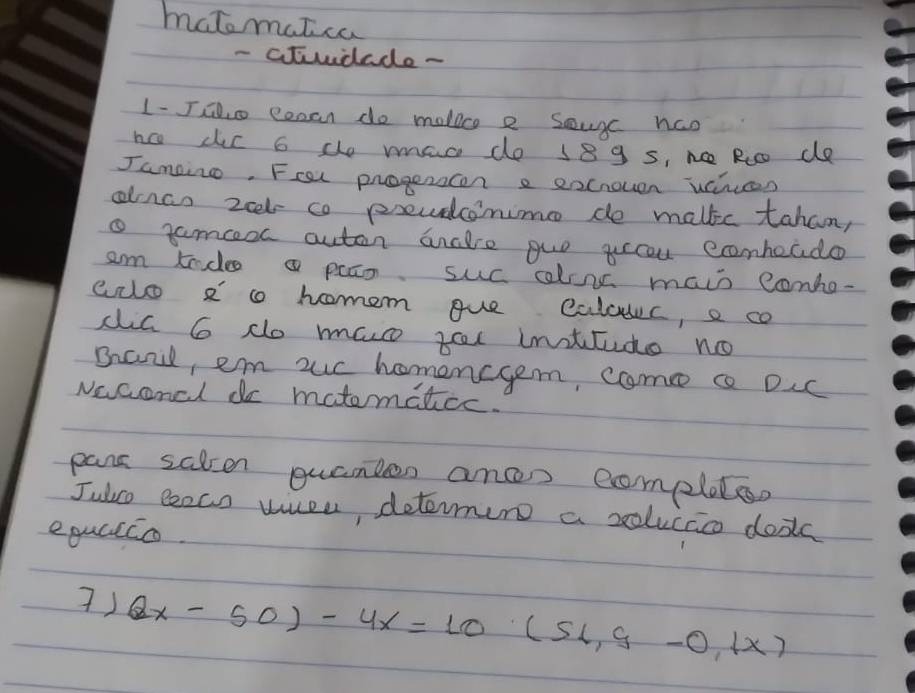 matematica
- atividade -
1- Júlio Cesar de mello e Souza nao
no dia 6 de maio de 1895, no Rio de
Janeiro. Foi professor e escreveu vários
obras sob o pseudônimo de malba tahan,
o famoso autor árabe que ficou conhecido
em todo o país. sua obra mais conhe-
cida é o homem que calculava, e o
dia 6 de maio foi instituído no
Brasil, em sua homenagem, como o Dia
Nacional da matemática.
para saber quantos anos completos
Julio Cesar viveu, determine a solução desta
equação.
7)(2x - 50) - 4x = 10 · (51,9 - 0,1x)